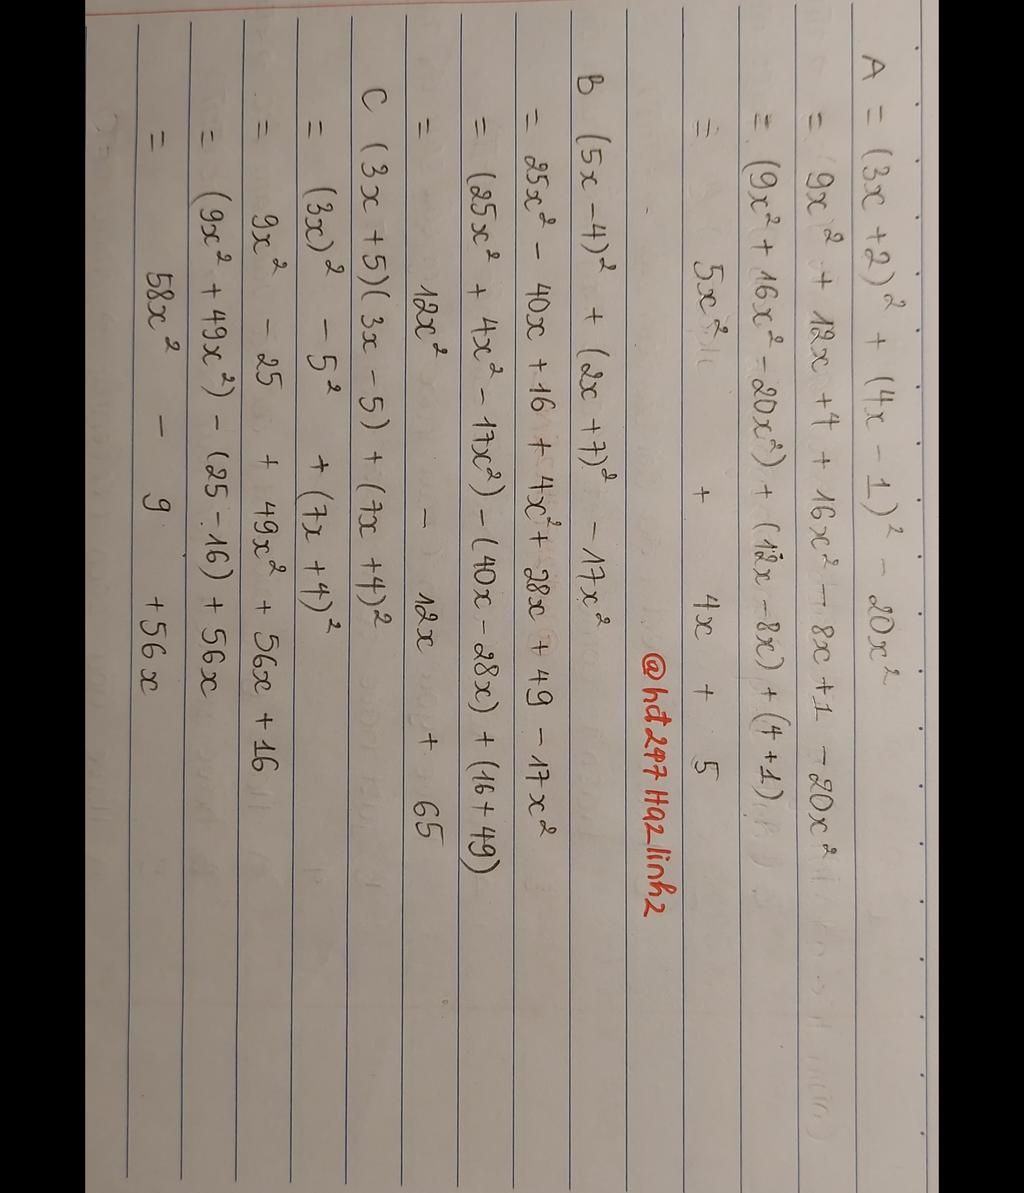 A = (3x + 2)² + (4x - 1)² - 20x²
= 9x² + 12x + 4 + 16x² - 8x + 1 - 20x²
= (9x² + 16x² - 20x²) + (12x - 8x) + (4 + 1)
= 5x² + 4x + 5
@hđ247 Haz linhz
B (5x - 4)² + (2x + 7)² - 17x²
= 25x² - 40x + 16 + 4x² + 28x + 49 - 17x²
= (25x² + 4x² - 17x²) - (40x - 28x) + (16 + 49)
= 12x² - 12x + 65
C (3x + 5)(3x - 5) + (7x + 4)²
= (3x)² - 5² + (7x + 4)²
= 9x² - 25 + 49x² + 56x + 16
= (9x² + 49x²) - (25 - 16) + 56x
= 58x² - 9 + 56x